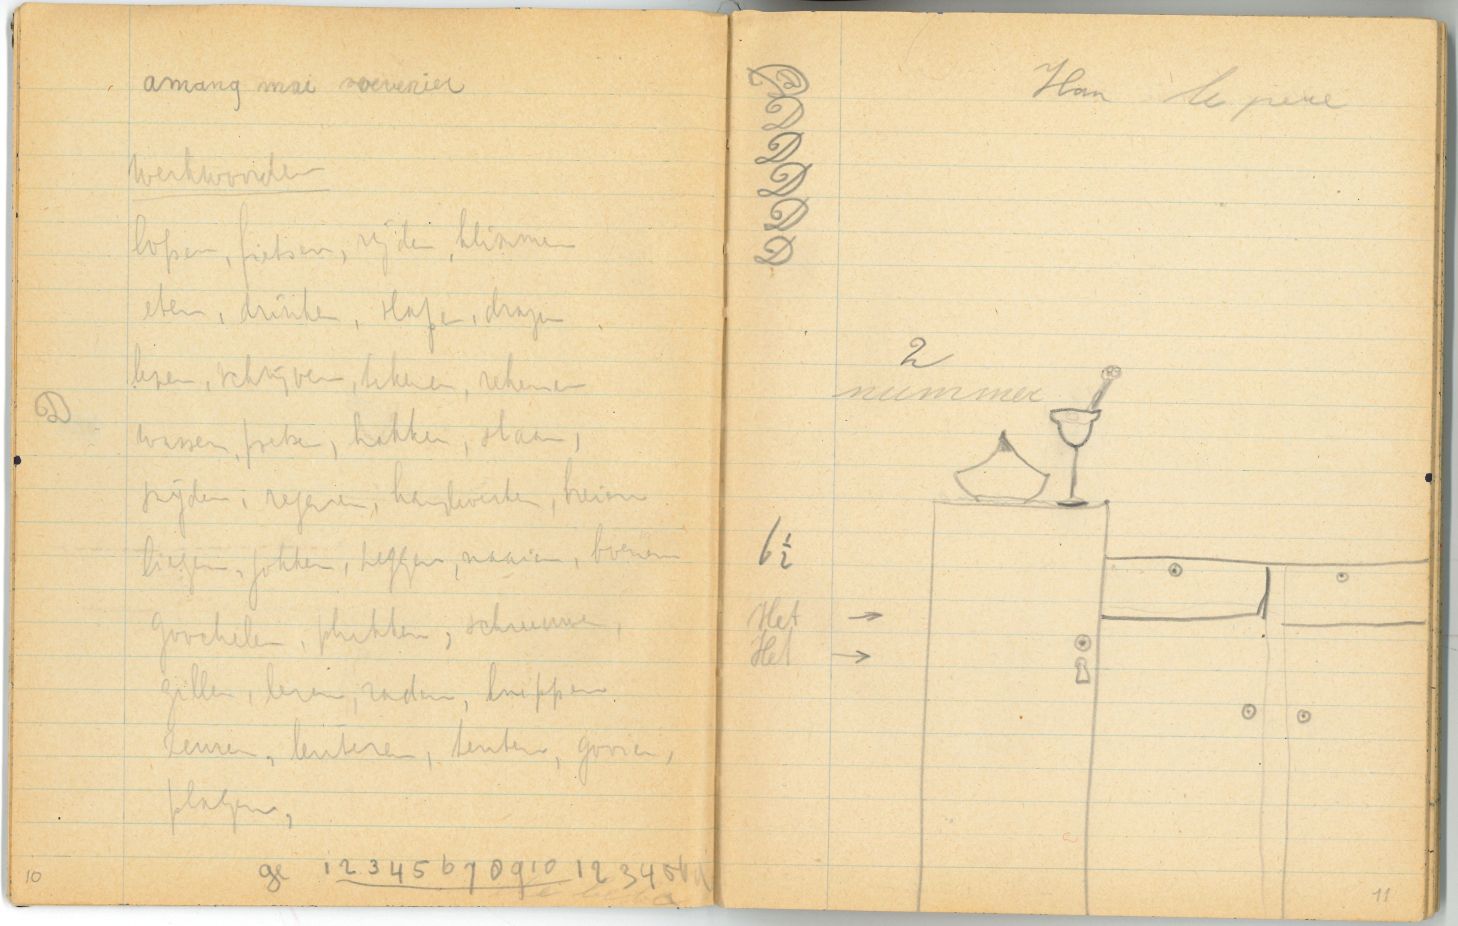 amang mai
werkwoorden
lopen, fietsen, rijden, klimmen
eten, drinken, slapen, dragen
lezen, schrijven, tekenen, rekenen
wassen, poetsen, hakken, slaan,
snijden, regenen, handwerken, breien
liegen, jokken, zeggen, naaien, boenen
goochelen, plukken, schreeuwen,
gillen, lezen, raden, knippen
zeuren, leuteren, gooien,
plagen,
D
ge 1 2 3 4 5 6 7 8 9 10 1 2 3 4 5 6
10
D
D
D
D
D
D
Han le pere
2
nummer
6 1/2
Het →
Het →
11